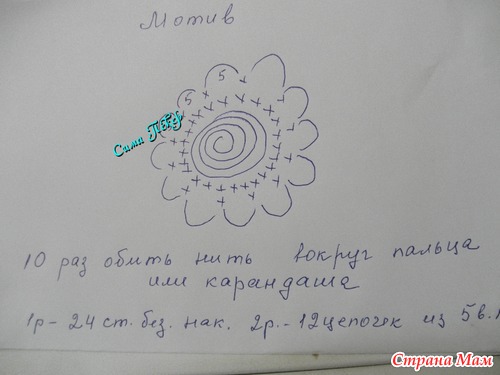 Мотив
5 5
Сима Пекер
10 раз обмить нить вокруг пальца
или карандаша
1р - 24 ст. без. нак. 2р. - 12 цепочек из 5 в.
Страна Мам